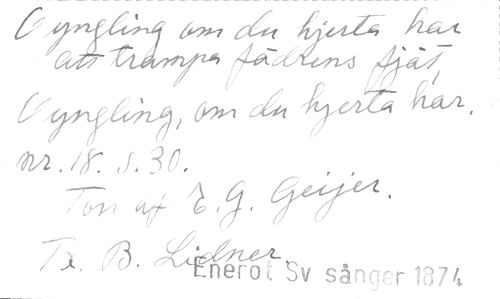 O yngling om du hjerta har
att trampa fädrens fjät,
O yngling, om du hjerta har.
nr. 18. s. 30.
Ton af E. G. Geijer.
Tx. B. Lidner.
Enerot Sv sånger 1874